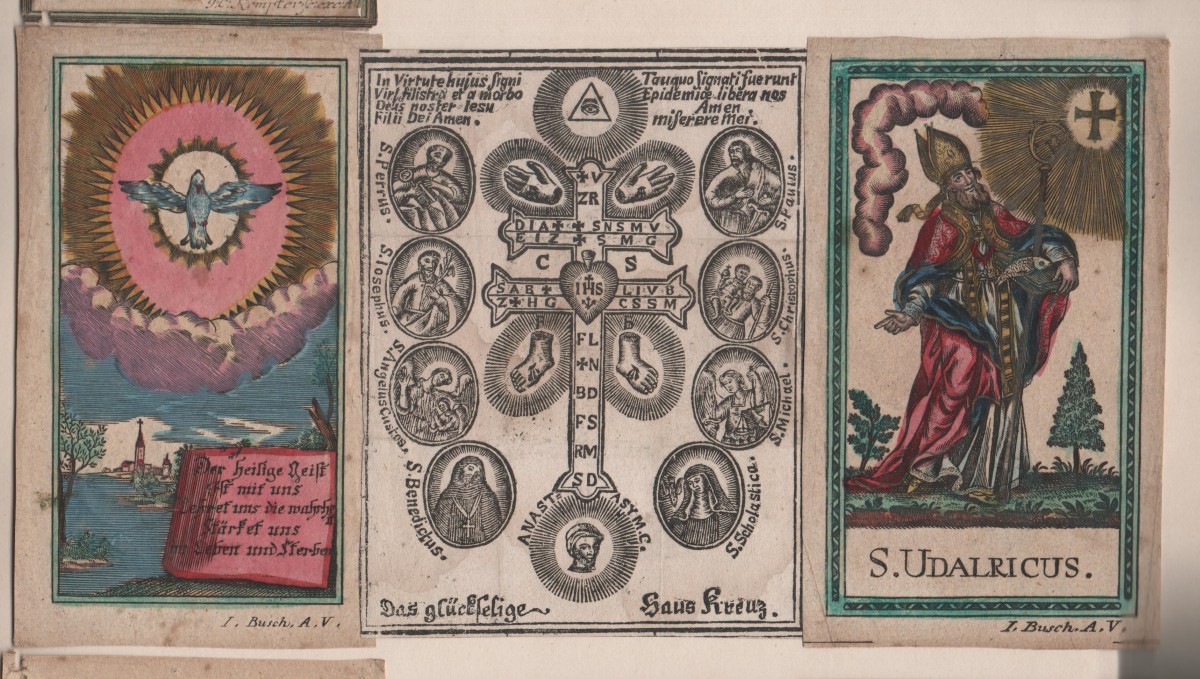 I. Busch. A. V.
Der heilige Geist
ist mit uns
Lehret uns die wahrhe
Stärket uns
im Leben und Sterben
In Virtute hujus Signi
Tauquo Signati fuerunt
et a morbo
Epidemiæ libera nos
Deus noster Iesu
Amen
Filii Dei Amen.
miserere mei.
S. Petrus.
S. Paulus.
S. Iosephus.
S. Christophus.
S. Angelus Custos.
S. Michael.
S. Benedictus.
S. Scholastica.
V
ZR
DIA SNSMV
BIZ SMG
C S
SAB LIVB
IHS
Z HG CSSM
FL
N
BD
FS
RM
SD
ANAST. SY.M.C.
Das glückselige
Haus Kreuz.
S. UDALRICUS.
I. Busch. A. V.